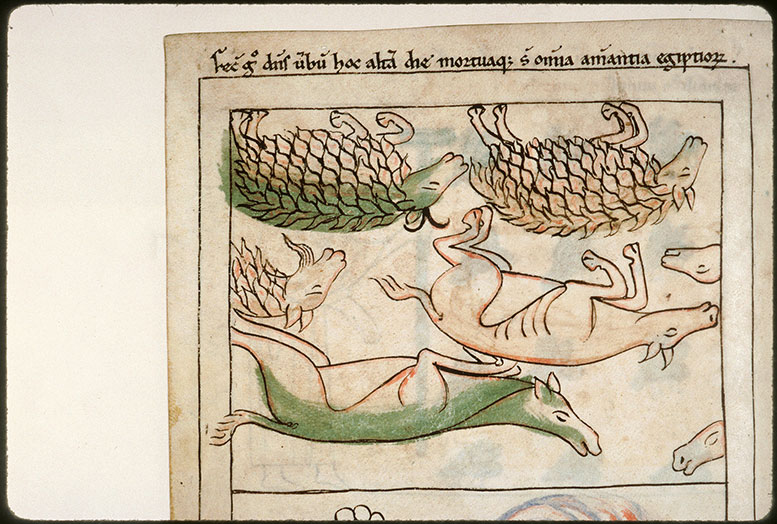 Fec̄ g° dn̄s v̄bū hoc alt̄a die mortuaq; s̄ om̄ia am̄antia egiptioꝝ .